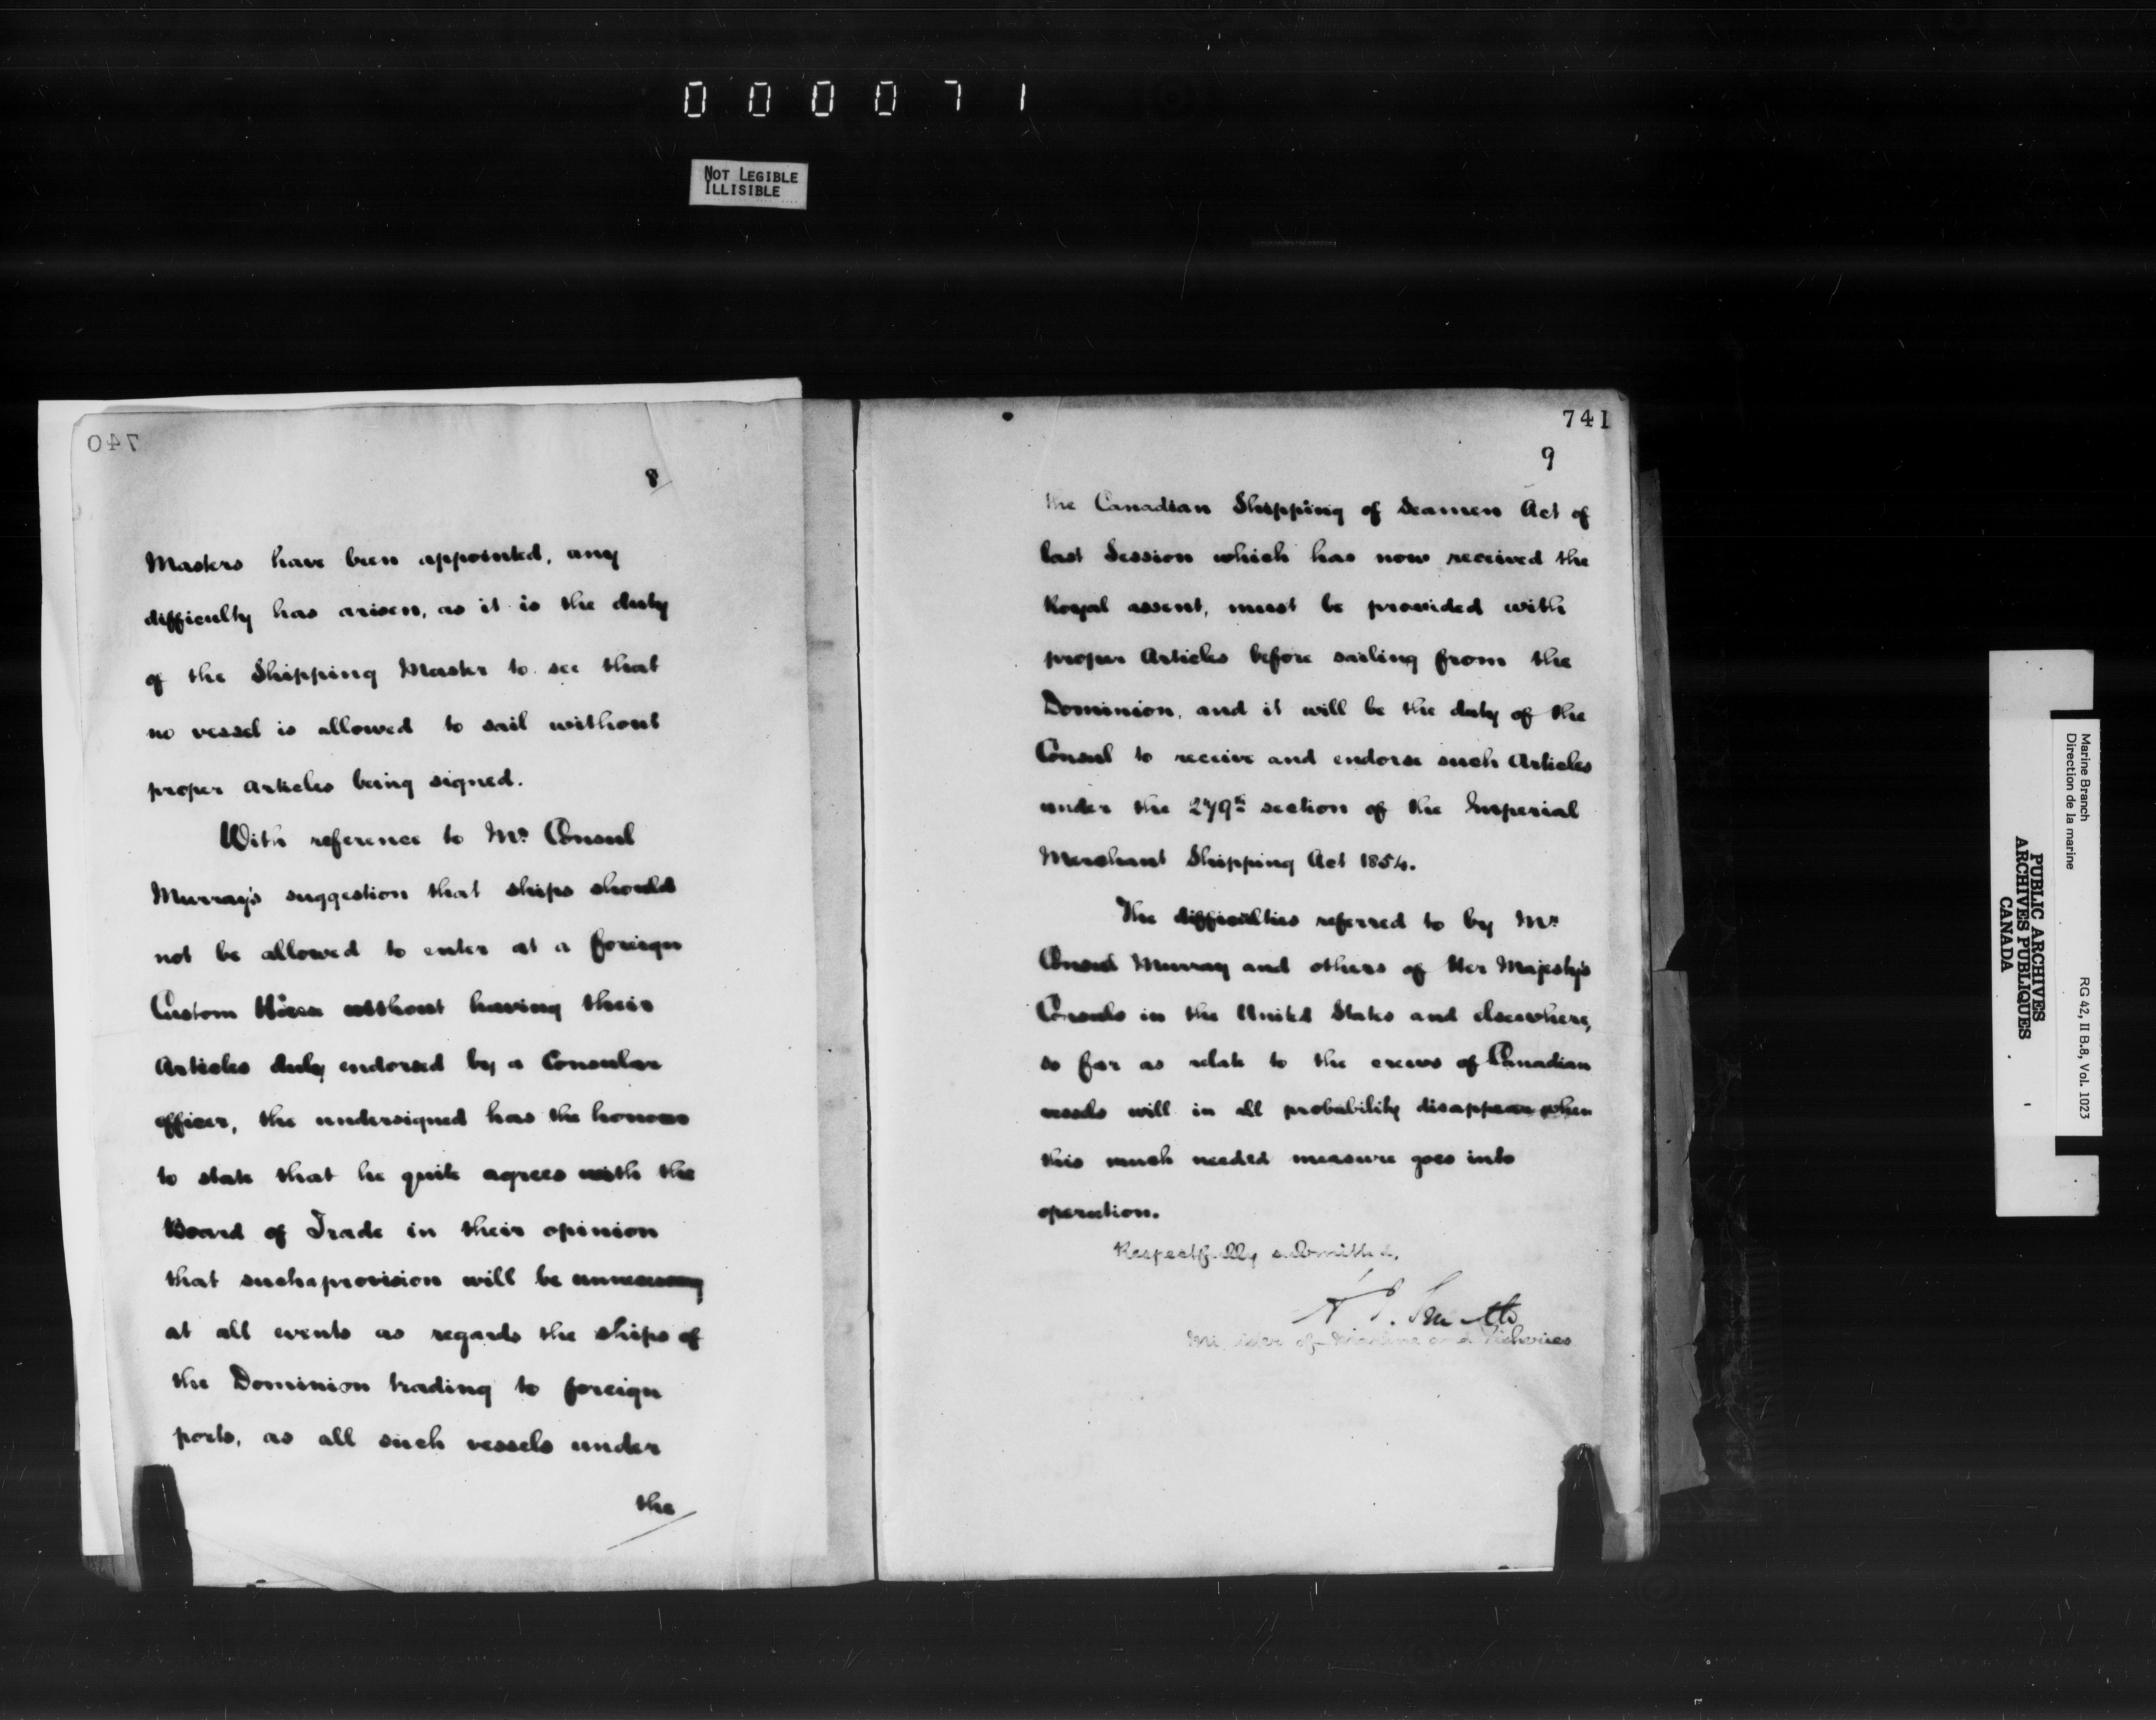 000071
NOT LEGIBLE
ILLISIBLE
740
8
Masters have been appointed, any
difficulty has arisen, as it is the duty
of the Shipping Master to see that
no vessel is allowed to sail without
proper Articles being signed.
With reference to Mr. Consul
Murray's suggestion that ships should
not be allowed to enter at a foreign
Custom House without having their
Articles duly endorsed by a Consular
officer, the undersigned has the honour
to state that he quite agrees with the
Board of Trade in their opinion
that such a provision will be unnecessary
at all events as regards the ships of
the Dominion trading to foreign
ports, as all such vessels under
the
741
9
the Canadian Shipping of Seamen Act of
last Session which has now received the
Royal assent, must be provided with
proper Articles before sailing from the
Dominion, and it will be the duty of the
Consul to receive and endorse such Articles
under the 279th section of the Imperial
Merchant Shipping Act 1854.
The difficulties referred to by Mr.
Consul Murray and others of Her Majesty's
Consuls in the United States and elsewhere,
so far as relate to the crews of Canadian
vessels will in all probability disappear when
this much needed measure goes into
operation.
Respectfully submitted,
A. J. Smith
Minister of Marine and Fisheries
Marine Branch
Direction de la marine
RG 42, II B.8, Vol. 1023
PUBLIC ARCHIVES
ARCHIVES PUBLIQUES
CANADA